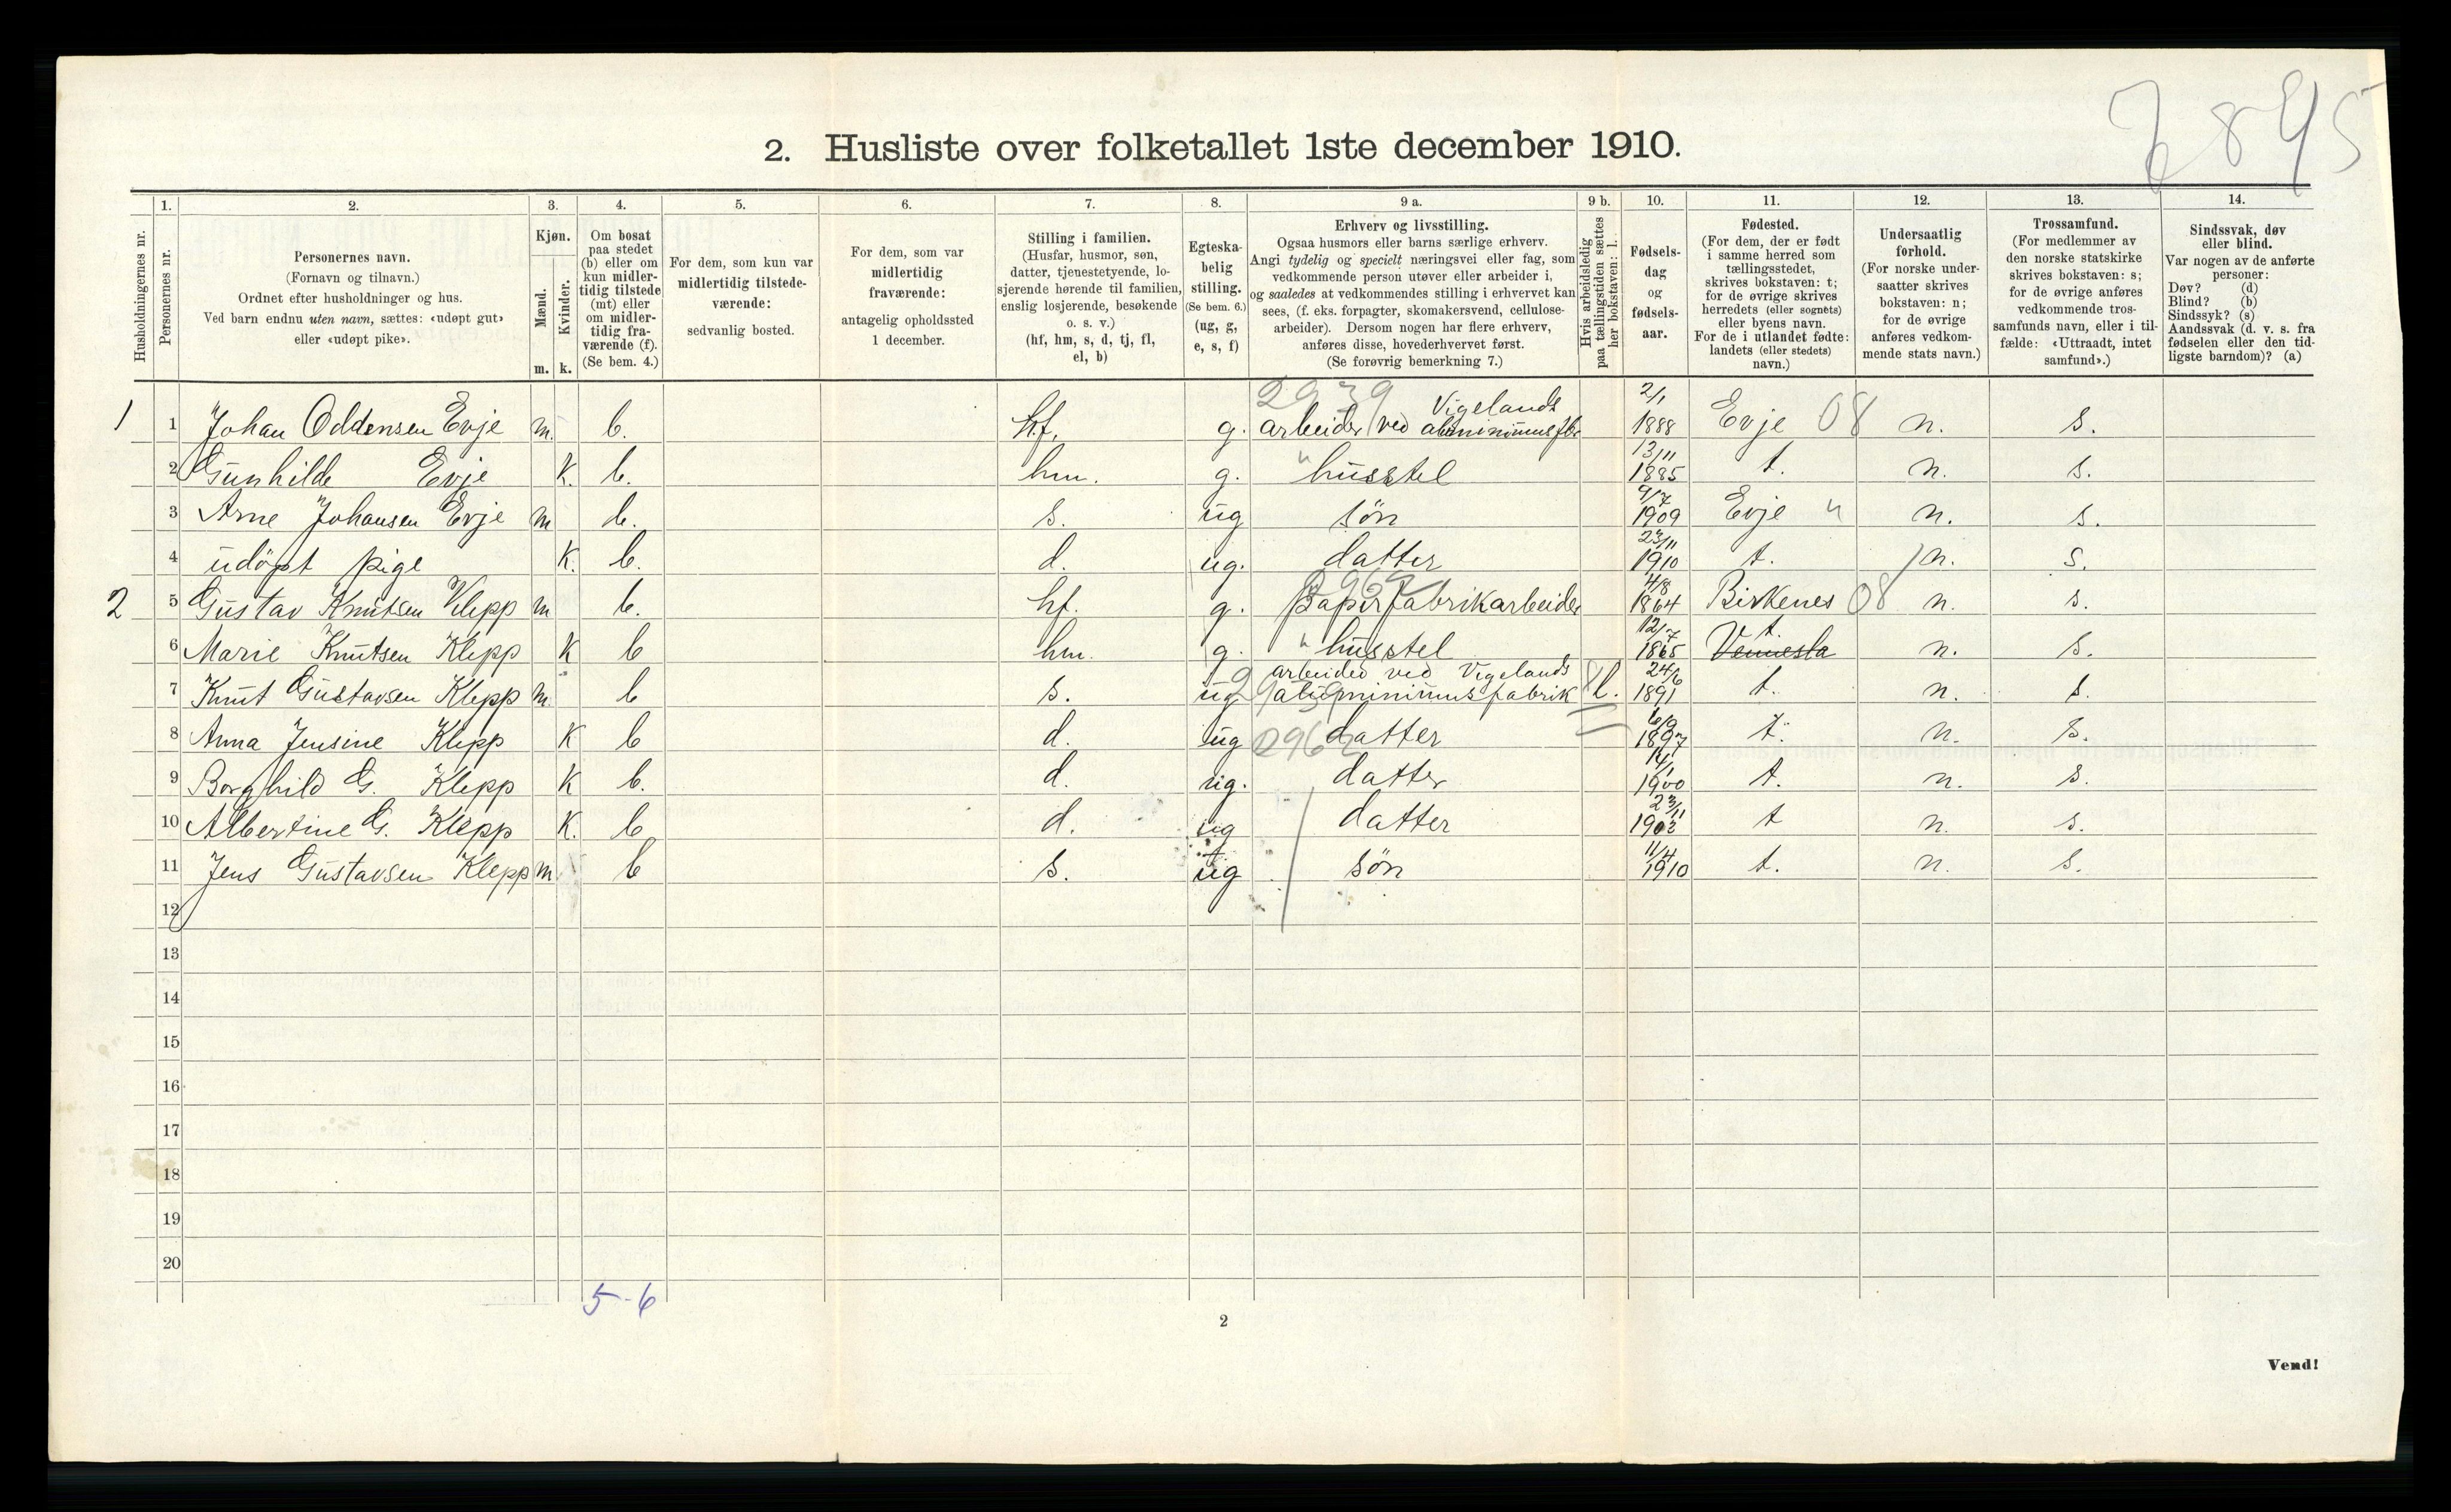 6845
2. Husliste over folketallet 1ste december 1910.
Husholdningernes nr.
1.
Personernes nr.
2.
Personernes navn.
(Fornavn og tilnavn.)
Ordnet efter husholdninger og hus.
Ved barn endnu uten navn, sættes: «udøpt gut»
eller «udøpt pike».
3.
Kjøn.
Mænd.
Kvinder.
m. k.
4.
Om bosat
paa stedet
(b) eller om
kun midler-
tidig tilstede
(mt) eller
om midler-
tidig fra-
værende (f).
(Se bem. 4.)
5.
For dem, som kun var
midlertidig tilstede-
værende:
sedvanlig bosted.
6.
For dem, som var
midlertidig
fraværende:
antagelig opholdssted
1 december.
7.
Stilling i familien.
(Husfar, husmor, søn,
datter, tjenestetyende, lo-
sjerende hørende til familien,
enslig losjerende, besøkende
o. s. v.)
(hf, hm, s, d, tj, fl,
el, b)
8.
Egteska-
belig
stilling.
(Se bem. 6.)
(ug, g,
e, s, f)
9 a.
Erhverv og livsstilling.
Ogsaa husmors eller barns særlige erhverv.
Angi tydelig og specielt næringsvei eller fag, som
vedkommende person utøver eller arbeider i,
og saaledes at vedkommendes stilling i erhvervet kan
sees, (f. eks. forpagter, skomakersvend, cellulose-
arbeider). Dersom nogen har flere erhverv,
anføres disse, hovederhvervet først.
(Se forøvrig bemerkning 7.)
9 b.
Hvis arbeidsledig
paa tællingstiden sættes
her bokstaven: l.
10.
Fødsels-
dag
og
fødsels-
aar.
11.
Fødested.
(For dem, der er født
i samme herred som
tællingsstedet,
skrives bokstaven: t;
for de øvrige skrives
herredets (eller sognets)
eller byens navn.
For de i utlandet fødte:
landets (eller stedets)
navn.)
12.
Undersaatlig
forhold.
(For norske under-
saatter skrives
bokstaven: n;
for de øvrige
anføres vedkom-
mende stats navn.)
13.
Trossamfund.
(For medlemmer av
den norske statskirke
skrives bokstaven: s;
for de øvrige anføres
vedkommende tros-
samfunds navn, eller i til-
fælde: «Uttraadt, intet
samfund».)
14.
Sindssvak, døv
eller blind.
Var nogen av de anførte
personer:
Døv? (d)
Blind? (b)
Sindssyk? (s)
Aandssvak (d. v. s. fra
fødselen eller den tid-
ligste barndom)? (a)
1 1 Johan Oddensen Evje m. b. hf. g. 2939 arbeider ved Vigelands aluminiumsfbr 2/1 1888 Evje 08 n. s.
2 Gunhilde Evje K. b. hm. g. " husstel 13/11 1885 t. n. s.
3 Arne Johansen Evje m b. s. ug søn 9/7 1909 Evje " n. s.
4 udöpt pige K. b. d. ug. datter 23/11 1910 t. n. s.
2 5 Gustav Knutsen Klepp m b. hf. g. Papirfabrikarbeider 4/8 1864 Birkenes 08 n. s.
6 Marie Knutsen Klepp K b hm. g. " husstel 12/7 1865 t. Vennesla n. s.
7 Knut Gustavsen Klepp m. b s. ug arbeider ved Vigelands aluminiumsfabrik l. 24/6 1891 t. n. s.
8 Anna Jensine Klepp K b d. ug datter 6/9 1897 t. n. s.
9 Borghild G. Klepp K b. d. ug. datter 1900 t. n. s.
10 Albertine G. Klepp K. b d. ug datter 23/11 1902 t n. s.
11 Jens Gustavsen Klepp m b s. ug søn 11/4 1910 t. n. s.
12
13
14
15
16
17
18
19
20
5-6
2
Vend!